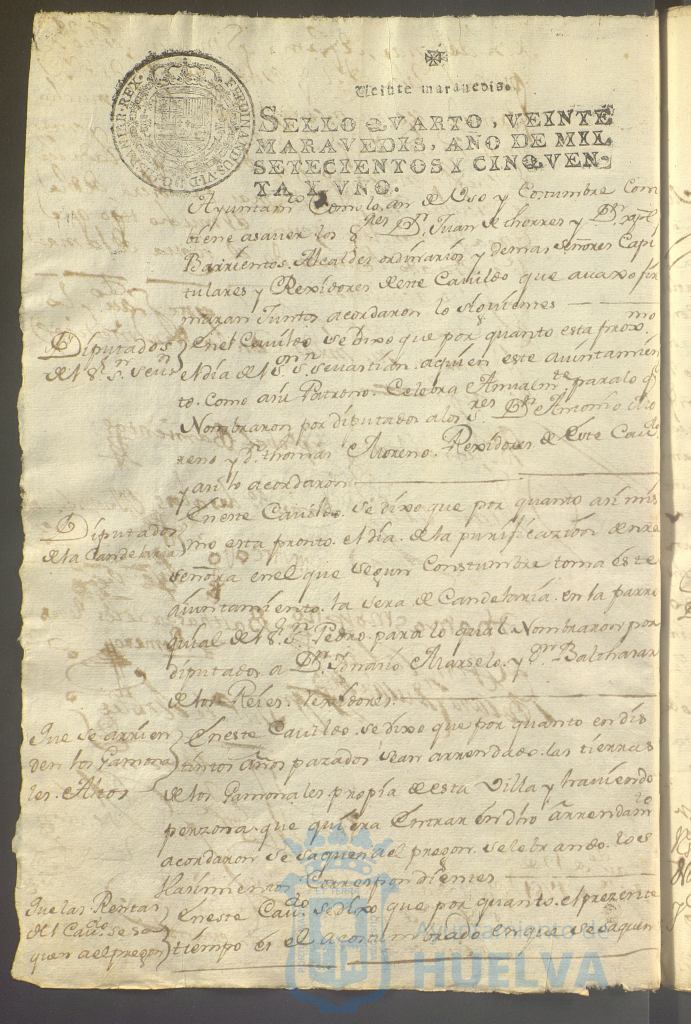 Veinte maravedis.
SELLO QVARTO, VEINTE
MARAVEDIS, AÑO DE MIL
SETECIENTOS Y CINQVEN-
TA Y VNO.
Ayuntamto Como lo an de Uso y Costumbre Com
biene asaver los Sres Dn Juan de thorres y Dn
Barrientos. Alcaldes ordinarios y demas señores Capi
tulares y Rexidores deste Cavildo que avaxo fir
maran Juntos acordaron lo siguiente
Diputados
de S. Sn Sevn
Enel Cavildo se dixo que por quanto esta prox.mo
el dia de S. Sn Sevastian. aquien este aiuntamien
to. Como asu Patrono. Celebra Anualmte para lo q
Nombraron por diputados a los Sres Dn Antonio
reno y D. thomas Moreno. Rexidores de Este Cavdo
y asi lo acordaron
Diputados
de la Candelaria
Eneste Cavildo. se dixo que por quanto asi mis
mo esta pronto. el dia. de la purificazion de nra
señora enel que segun Constumbre toma este
aiuntamiento. la sera de Candelaria. en la parro
quial de S. Sn Pedro. para lo qual Nombraron por
diputados a Dn Ignazio Marselo. y Dn Balthasar
de los Reies. Rexidores.
Que se arrien
den los Gamona
les. Altos
Eneste Cavildo. se dixo que por quanto en dis
tintos años pasados sean arrendado. las tierras
de los Gamonales propia de esta Villa y haviendo
perzona. que quiera Entrar en dho arrendamto
acordaron se saquen ael pregon. selebrando. los
Hasimientos Correspondientes
Que las Rentas
del Cavdo se sa
quen ael pregon
Eneste Cavdo se dixo que por quanto. el prezente
tiempo es el acostumbrado en que se saquen
Ayuntamiento de
HUELVA